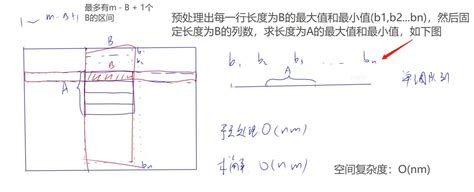 最多有m - B + 1个
B的区间
1 ~ m-B+1
预处理出每一行长度为B的最大值和最小值(b1,b2...bn)，然后固
定长度为B的列数，求长度为A的最大值和最小值，如下图
B
A
bn
b1 b2 b3 ... bn
A
单调队列
预处理 O(nm)
求解 O(nm)
空间复杂度：O(nm)